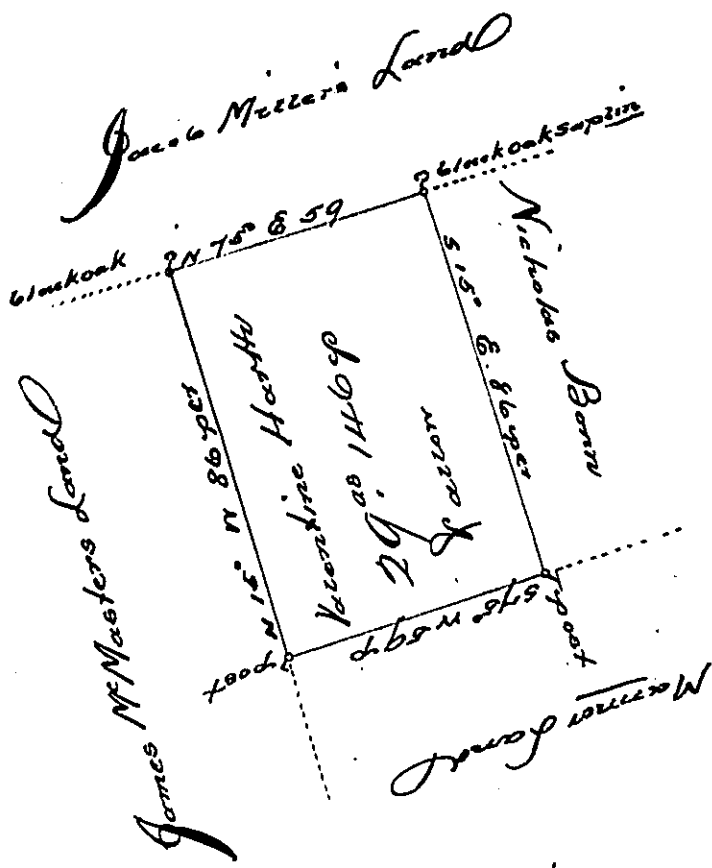 Jacob Miller's Land
blackoak
N 75° E 59
blackoak saplin
Nicholas Bonn
S 15° E. 86 per
N 15° W 86 per
Valentine Harth
29.as 146 p
James McMasters Land
post
S 75° W 59 p
post
Mannor Land